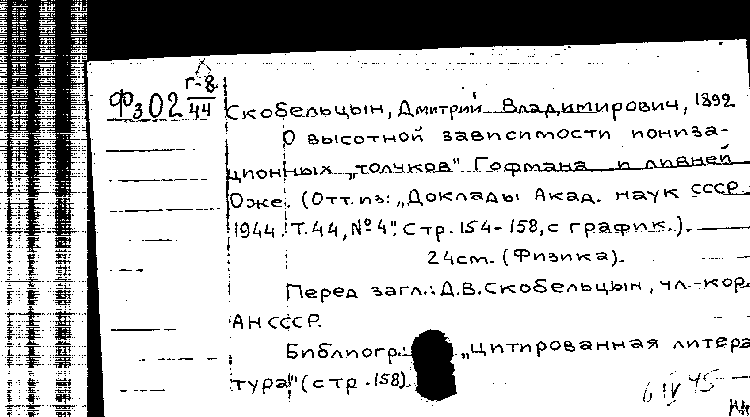 Г-8
Фз02 44
Скобельцын, Дмитрий Владимирович, 1892
О высотной зависимости иониза-
ционных „толчков" Гофмана и ливней
Оже. (Отт. из: „Доклады Акад. наук СССР
1944. Т. 44, № 4". Стр. 154-158, с график.).
24см. (Физика).
Перед загл.: Д.В. Скобельцын, чл.-кор.
АН СССР.
Библиогр.: „Цитированная литера
тура" (стр. 158)
6 IV 45